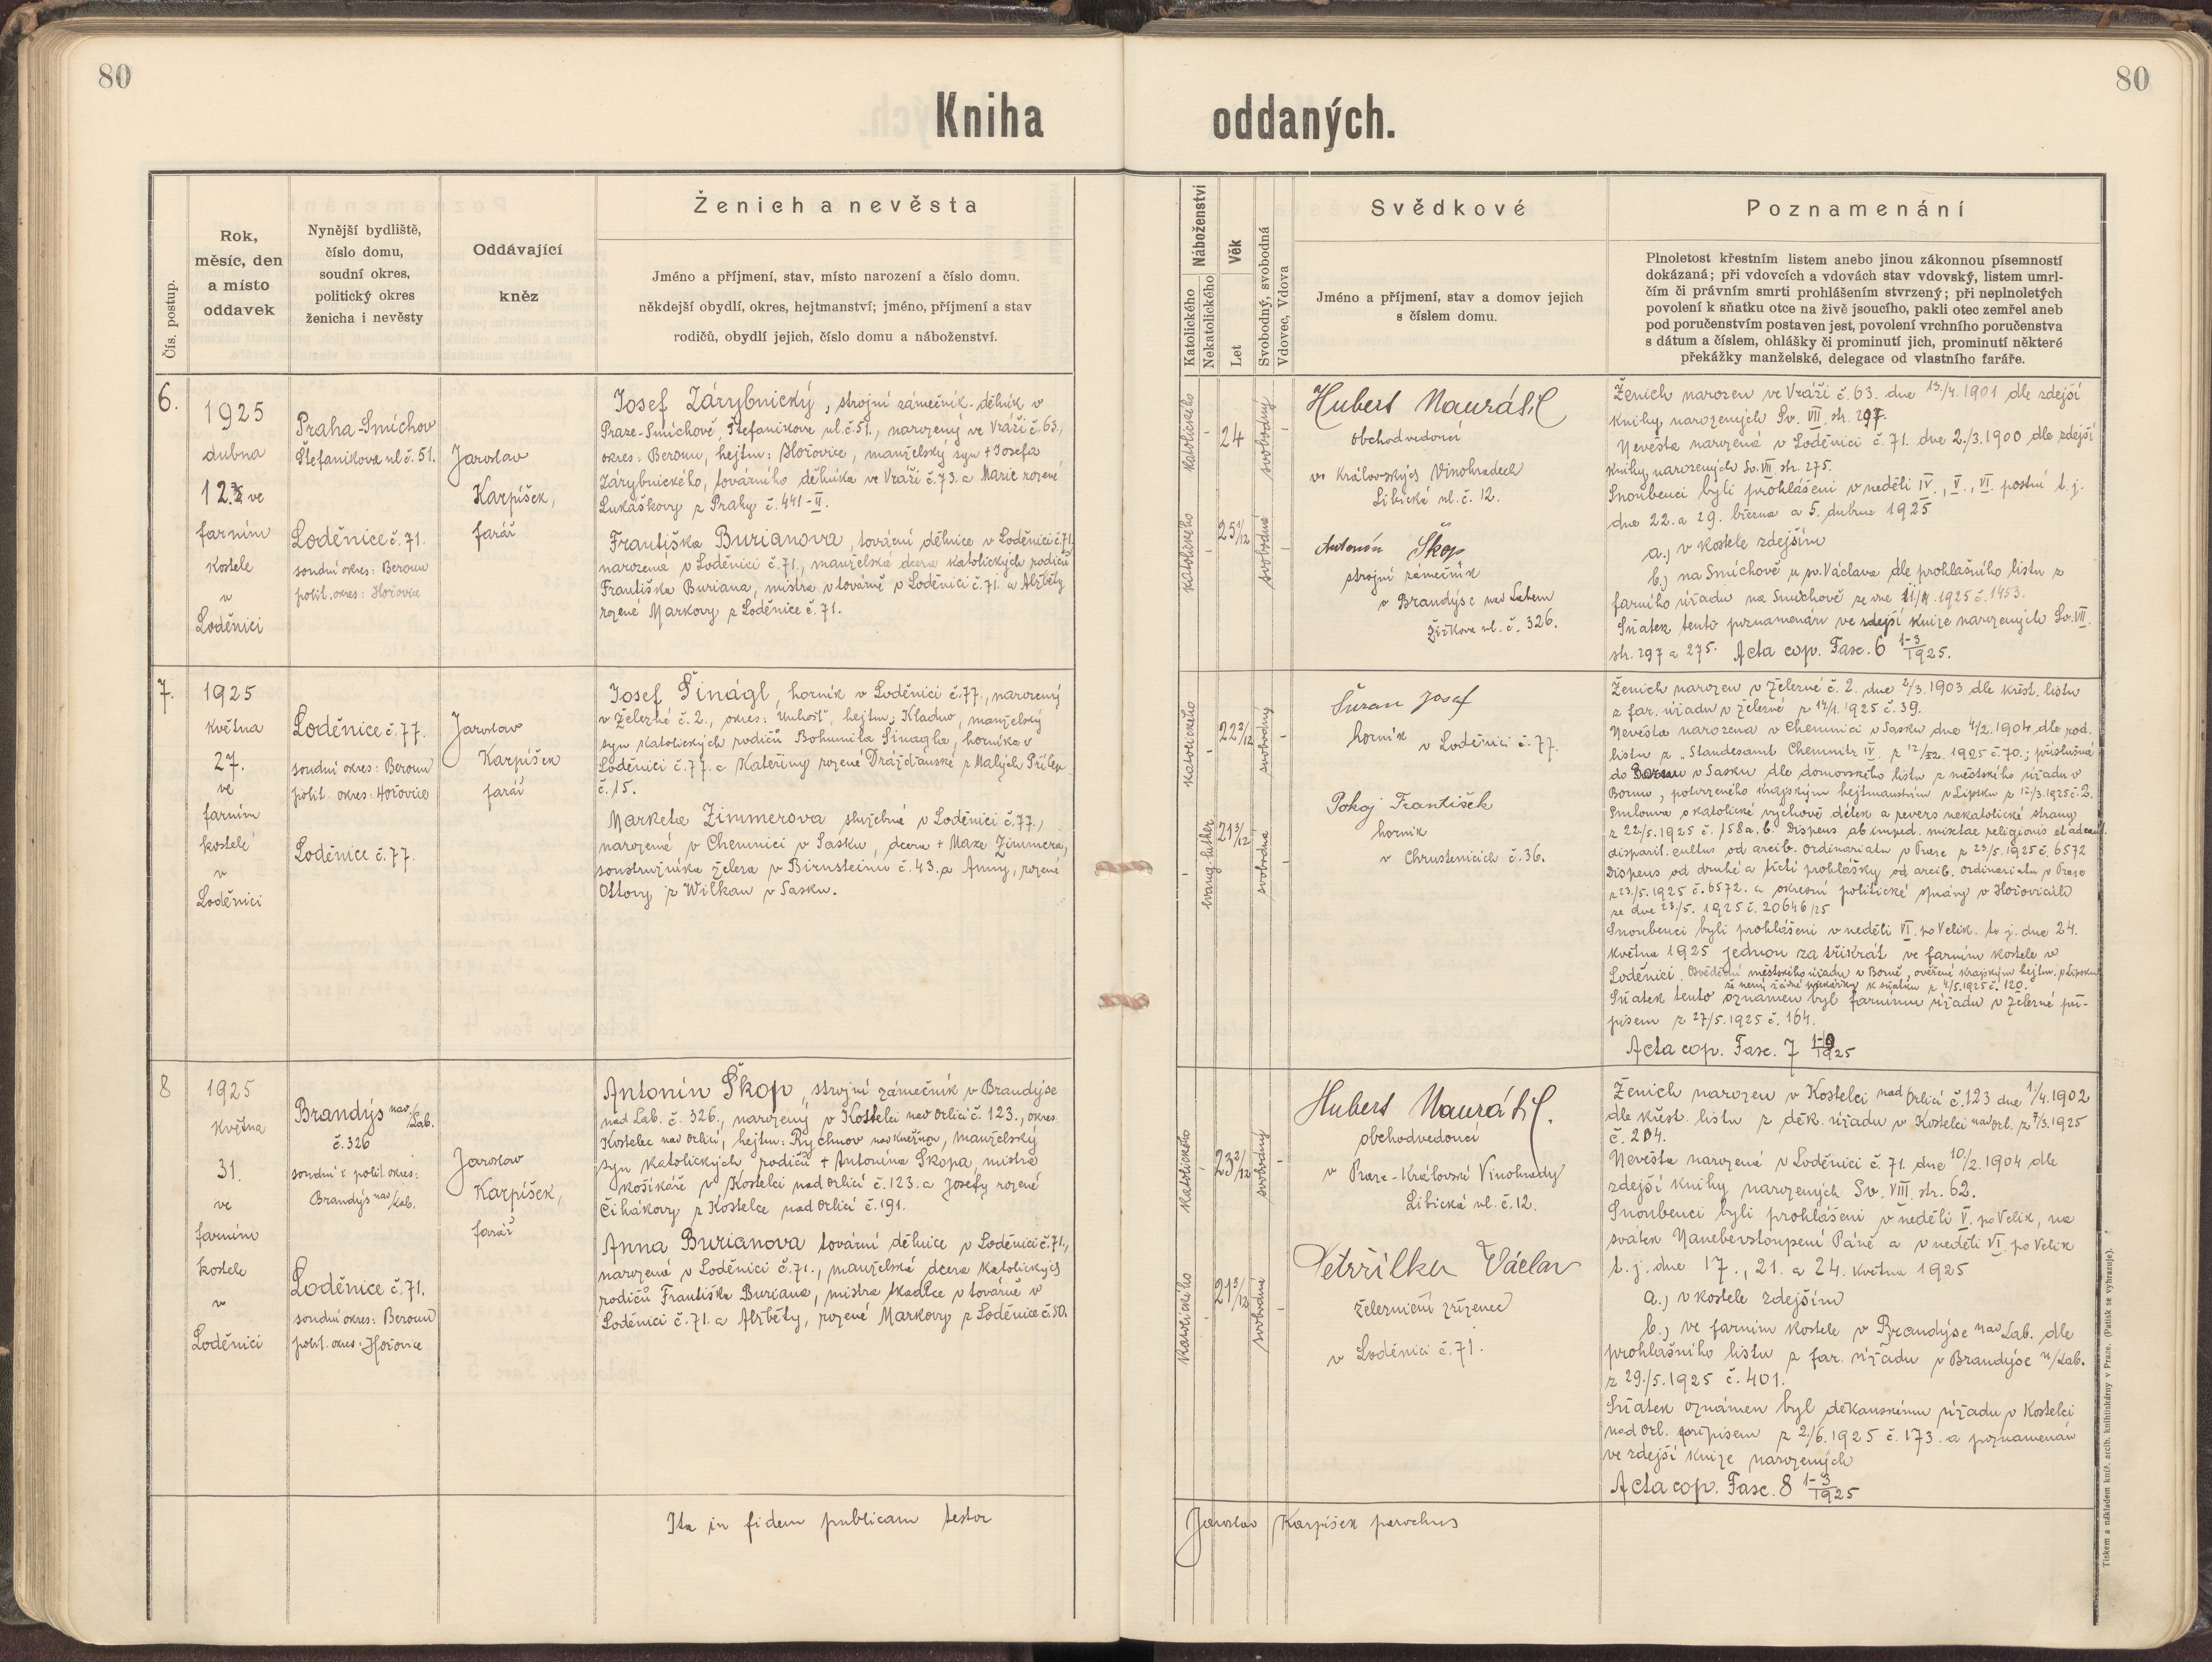 80
80
Kniha oddaných.
Čís. postup.
Rok,
měsíc, den
a místo
oddavek
Nynější bydliště,
číslo domu,
soudní okres,
politický okres
ženicha i nevěsty
Oddávající
kněz
Ženich a nevěsta
Jméno a příjmení, stav, místo narození a číslo domu.
někdejší obydlí, okres, hejtmanství; jméno, příjmení a stav
rodičů, obydlí jejich, číslo domu a náboženství.
Náboženství
Katolického
Nekatolického
Věk
Let
Svobodný, svobodná
Vdovec, Vdova
Svědkové
Jméno a příjmení, stav a domov jejich
s číslem domu.
Poznamenání
Plnoletost křestním listem anebo jinou zákonnou písemností
dokázaná; při vdovcích a vdovách stav vdovský, listem umrl-
čím či právním smrti prohlášením stvrzený; při neplnoletých
povolení k sňatku otce na živě jsoucího, pakli otec zemřel aneb
pod poručenstvím postaven jest, povolení vrchního poručenstva
s dátum a číslem, ohlášky či prominutí jich, prominutí některé
překážky manželské, delegace od vlastního faráře.
6.
1925
dubna
12. ve
farním
kostele
v
Loděnici
Praha-Smíchov
Štefanikova ul č. 51.
Loděnice č. 71.
soudní okres: Beroun
polit. okres: Hořovice
Jaroslav
Karpíšek,
farář
Josef Zárybnický, strojní zámečník. dělník v
Praze-Smíchově, Štefanikova ul. č. 51., narozený ve Vráži č. 63.,
okres: Beroun, hejtm: Hořovice, manželský syn + Josefa
Zárybnického, továrního dělníka ve Vráži č. 73. a Marie rozené
Lukáškovy z Prahy č. 441-II.
Františka Burianova, tovární dělnice v Loděnici č. 71.
narozená v Loděnici č. 71., manželská dcera katolických rodičů
Františka Buriana, mistra v továrně v Loděnici č. 71. a Alžběty
rozené Markovy z Loděnice č. 71.
katolického
24
svobodný
katolického
25 1/12
svobodná
Hubert Navrátil
obchodvedoucí
v Královských Vinohradech
Libická ul. č. 12.
Antonín Škop
strojní zámečník
v Brandýse nad Labem
Žižkova ul. č. 326.
Ženich narozen ve Vráži č. 63. dne 13/4. 1901 dle zdejší
knihy narozených Sv. VII. str. 297.
Nevěsta narozená v Loděnici č. 71. dne 2./3. 1900 dle zdejší
knihy narozených Sv. VII. str. 275.
Snoubenci byli prohlášeni v neděli IV., V., VI. postní t. j.
dne 22. a 29. března a 5. dubna 1925
a.) v kostele zdejším
b.) na Smíchově u sv. Václava dle prohlašního listu z
farního úřadu na Smíchově ze dne 11./4. 1925 č. 1453.
Sňatek tento poznamenán ve zdejší knize narozených Sv. VII.
str. 297 a 275. Acta cop. Fasc. 6 1-3/1925.
7.
1925
května
27.
ve
farním
kostele
v
Loděnici
Loděnice č. 77.
soudní okres: Beroun
polit. okres: Hořovice
Loděnice č. 77.
Jaroslav
Karpíšek
farář
Josef Šinágl, horník v Loděnici č. 77., narozený
v Železné č. 2., okres: Unhošť, hejtm: Kladno, manželský
syn katolických rodičů Bohumila Šinagla, horníka v
Loděnici č. 77. a Kateřiny rozené Drážďanské z Malých Přílep
č. 15.
Marketa Zimmerova služebná v Loděnici č. 77.,
narozená v Chemnici v Sasku, dcera + Maxe Zimmera,
konstružníka železa v Birnsteinu č. 43. a Anny, rozené
Ottovy z Wilkau v Sasku.
katolického
22 2/12
svobodný
evang. luther.
21 3/12
svobodná
Šuran Josef
horník v Loděnici č. 77.
Pokoj František
horník
v Chrustenicích č. 36.
Ženich narozen v Železné č. 2. dne 2/3. 1903 dle křest. listu
z far. úřadu v Železné z 14/1. 1925 č. 39.
Nevěsta narozena v Chemnici v Sasku dne 4/2. 1904 dle rod.
listu z „Standesamt Chemnitz IV. z 12/II. 1925 č. 70.; příslušná
do v Sasku dle domovského listu z městského úřadu v
Borně, potvrzeného krajským hejtmanstvím v Lipsku z 12/3. 1925 č. 2.
Smlouva o katolické výchově dětek a revers nekatolické strany
z 22/5. 1925 č. 158 a. b. Dispens ab imped. mixtae religionis et ad caut.
disparit. cultus od arcib. Ordinariatu v Praze z 23/5. 1925 č. 6572
Dispens od druhé a třetí prohlášky od arcib. Ordinariatu v Praze
z 23./5. 1925 č. 6572. a okresní politické správy v Hořovicích
ze dne 23./5. 1925 č. 20646/25
Snoubenci byli prohlášeni v neděli VI. po Velik. t. j. dne 24.
května 1925 jednou za třikrát ve farním kostele v
Loděnici. Osvědčení městského úřadu v Borně, ověřené krajským hejtm. v Lipsku
že není žádné překážky k sňatku z 4/5. 1925 č. 120.
Sňatek tento oznámen byl farnímu úřadu v Železné pří-
pisem z 27/5. 1925 č. 164.
Acta cop. Fasc. 7 1-9/1925
8
1925
května
31.
ve
farním
kostele
v
Loděnici
Brandýs nad/Lab.
č. 326
soudní i polit. okres:
Brandýs nad/Lab.
Loděnice č. 71.
soudní okres: Beroun
polit. okres: Hořovice
Jaroslav
Karpíšek,
farář
Antonín Škop, strojní zámečník v Brandýse
nad Lab. č. 326., narozený v Kostelci nad Orlicí č. 123., okres.
Kostelec nad Orlicí, hejtm: Rychnov nad Kněžnou, manželský
syn katolických rodičů + Antonína Škopa, mistra
košíkáře v Kostelci nad Orlicí č. 123. a Josefy rozené
Čihákovy z Kostelce nad Orlicí č. 191.
Anna Burianova tovární dělnice v Loděnici č. 71.,
narozená v Loděnici č. 71., manželská dcera katolických
rodičů Františka Buriana, mistra tkadlce v továrně v
Loděnici č. 71. a Alžběty, rozené Markovy z Loděnice č. 50.
katolického
23 2/12
svobodný
katolického
21 3/12
svobodná
Hubert Navrátil.
obchodvedoucí
v Praze-Královské Vinohrady
Libická ul. č. 12.
Petržilka Václav
železniční zřízenec
v Loděnici č. 71.
Ženich narozen v Kostelci nad Orlicí č. 123 dne 1/4. 1902
dle křest. listu z děk. úřadu v Kostelci nad Orl. z 7/3. 1925
č. 204.
Nevěsta narozená v Loděnici č. 71. dne 10/2. 1904 dle
zdejší knihy narozených Sv. VIII. str. 62.
Snoubenci byli prohlášeni v neděli V. po Velik, na
svátek Nanebevstoupení Páně a v neděli VI. po Velik
t. j. dne 17., 21. a 24. května 1925
a.) v kostele zdejším
b.) ve farním kostele v Brandýse nad Lab. dle
prohlašního listu z far. úřadu v Brandýse n/Lab.
z 29./5. 1925 č. 401.
Sňatek oznámen byl děkanskému úřadu v Kostelci
nad Orl. přípisem z 2./6. 1925 č. 173. a poznamenán
ve zdejší knize narozených
Acta cop. Fasc. 8 1-3/1925
Ita in fidem publicam testor
Jaroslav Karpíšek parochus
Tiskem a nákladem kníž. arcib. knihtiskárny v Praze. (Patisk se vyhrazuje).